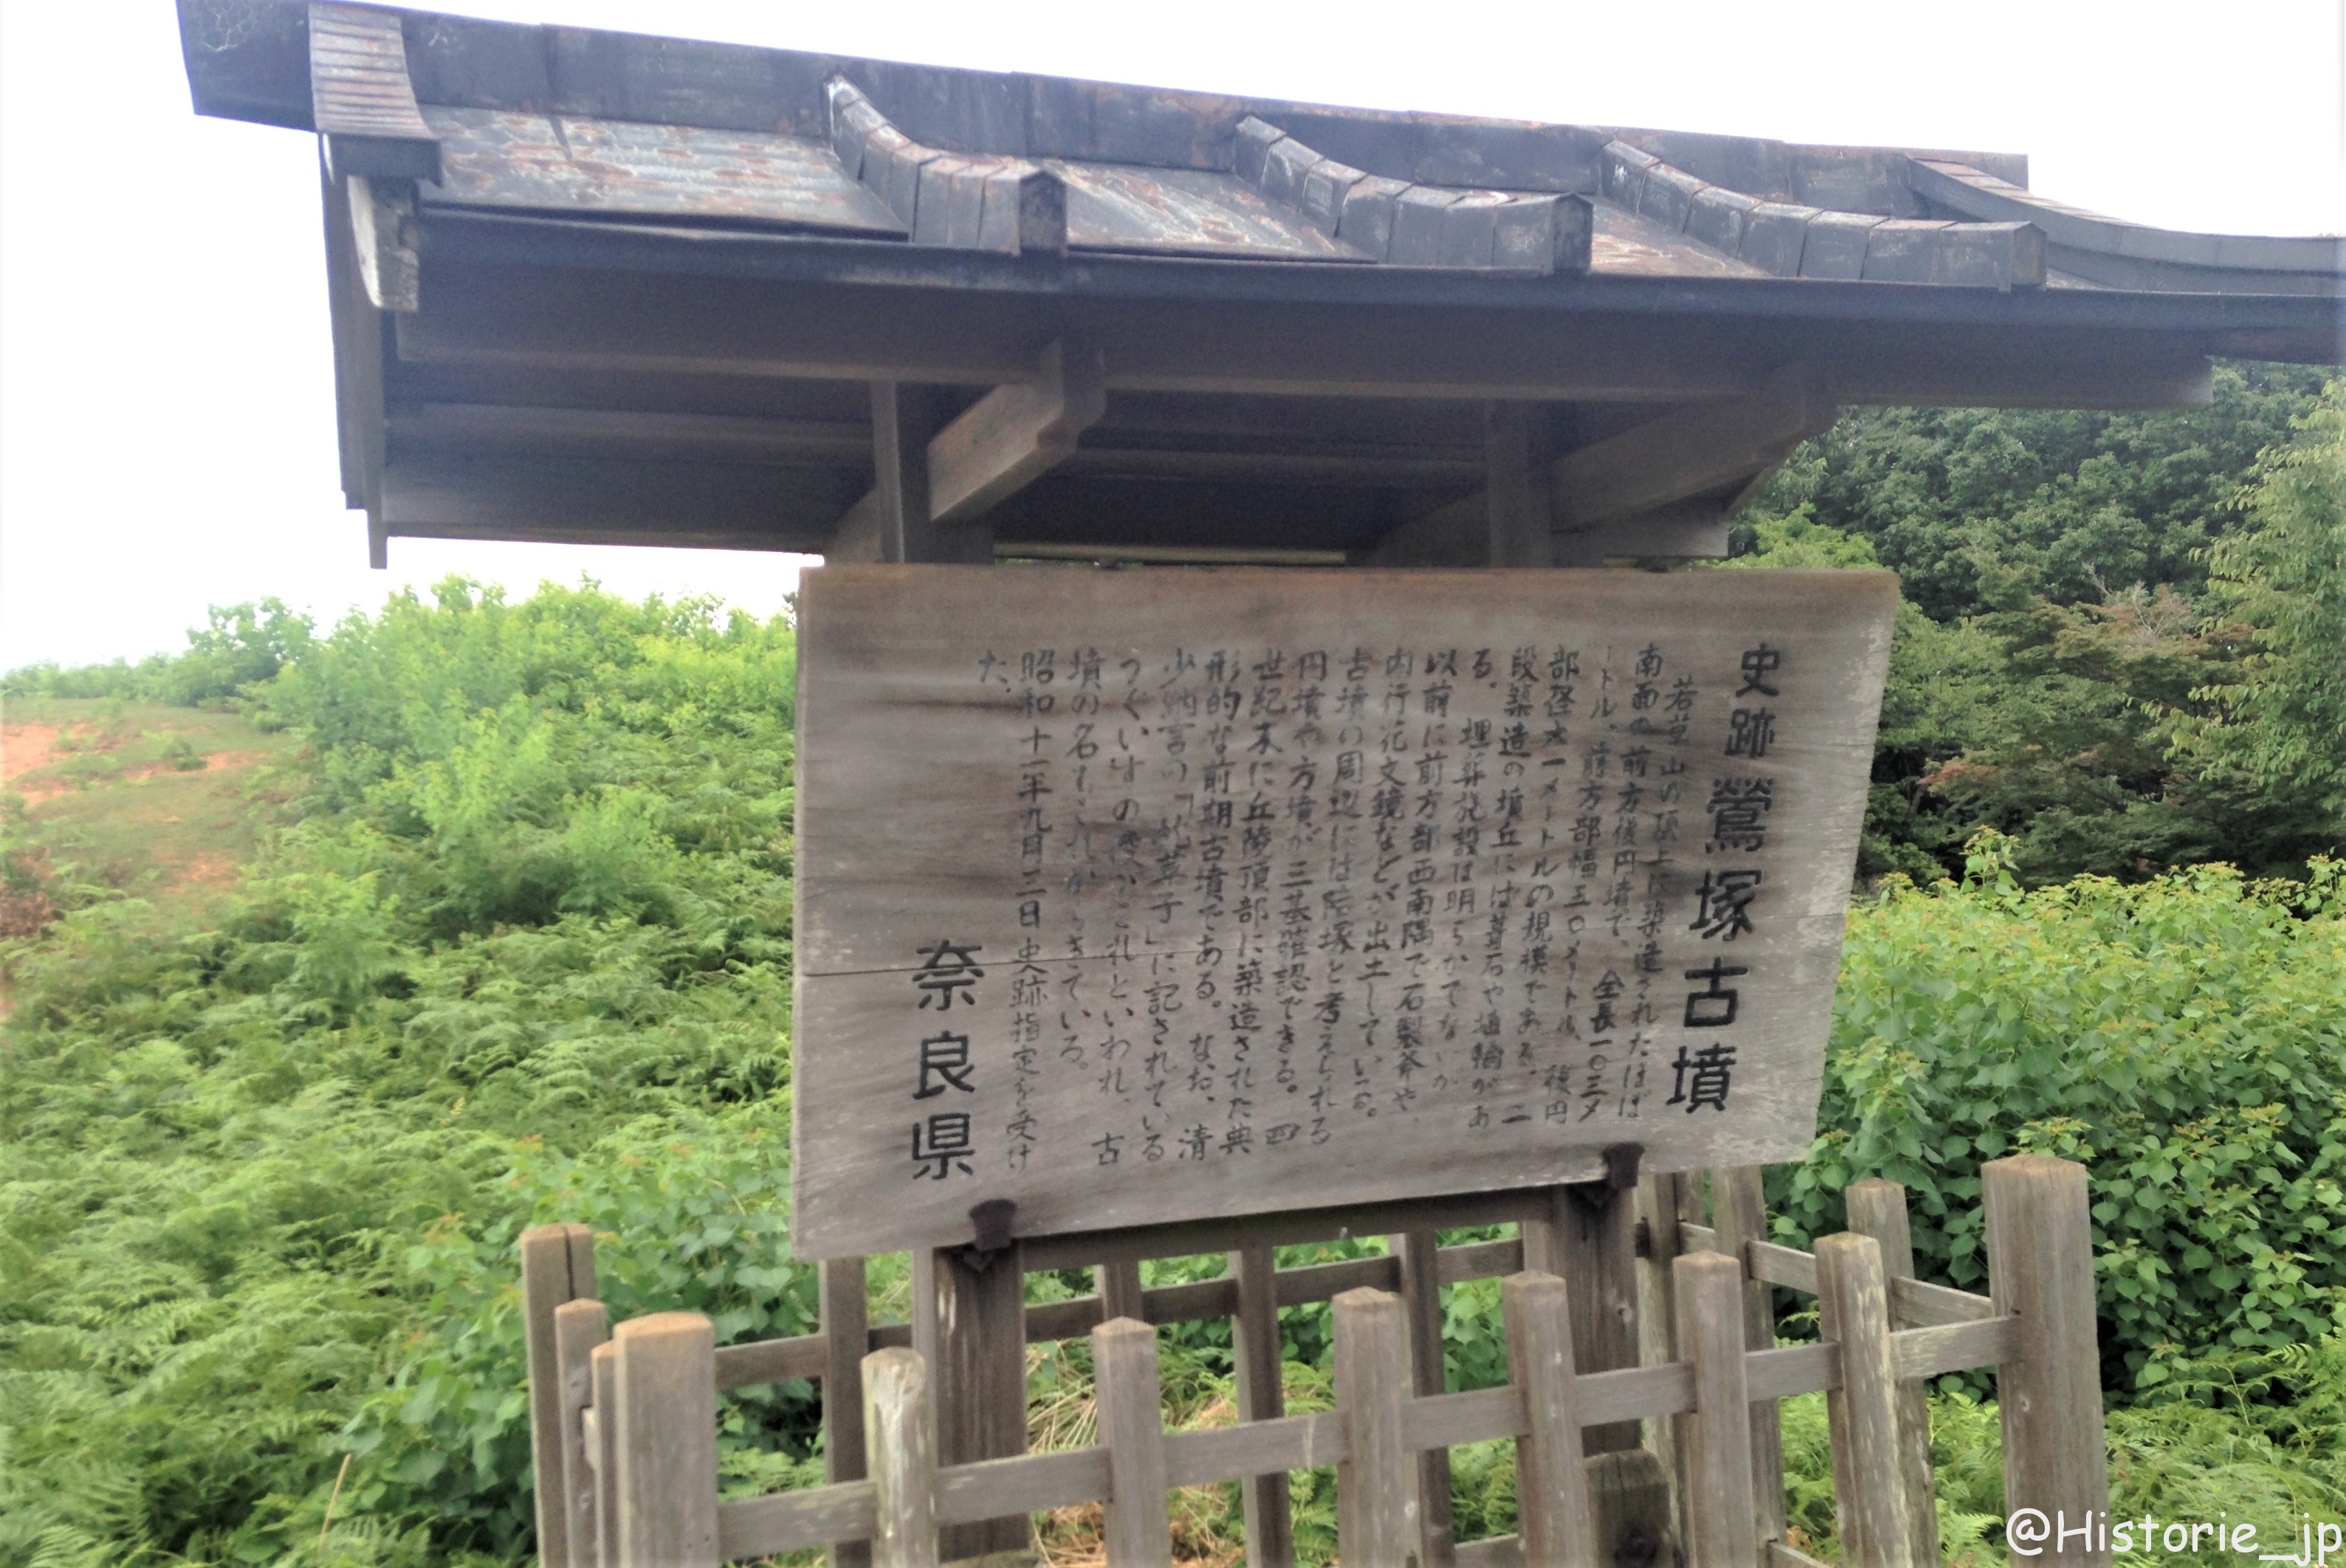 史跡 鶯塚古墳
若草山の頂上に築造されたほぼ
南面の前方後円墳で、全長一〇三メ
ートル、前方部幅五〇メートル、後円
部径六一メートルの規模である。二
段築造の墳丘には葺石や埴輪があ
る。埋葬施設は明らかでないが
以前に前方部西南隅で石製斧や、
内行花文鏡などが出土している。
古墳の周辺には陪塚と考えられる
円墳や方墳が三基確認できる。四
世紀末に丘陵頂部に築造された典
形的な前期古墳である。なお、清
少納言の「枕草子」に記されている
うぐいすのみささぎがこれといわれ、古
墳の名もこれからきている。
昭和十一年九月三日史跡指定を受け
た。
奈良県
@Historie_jp